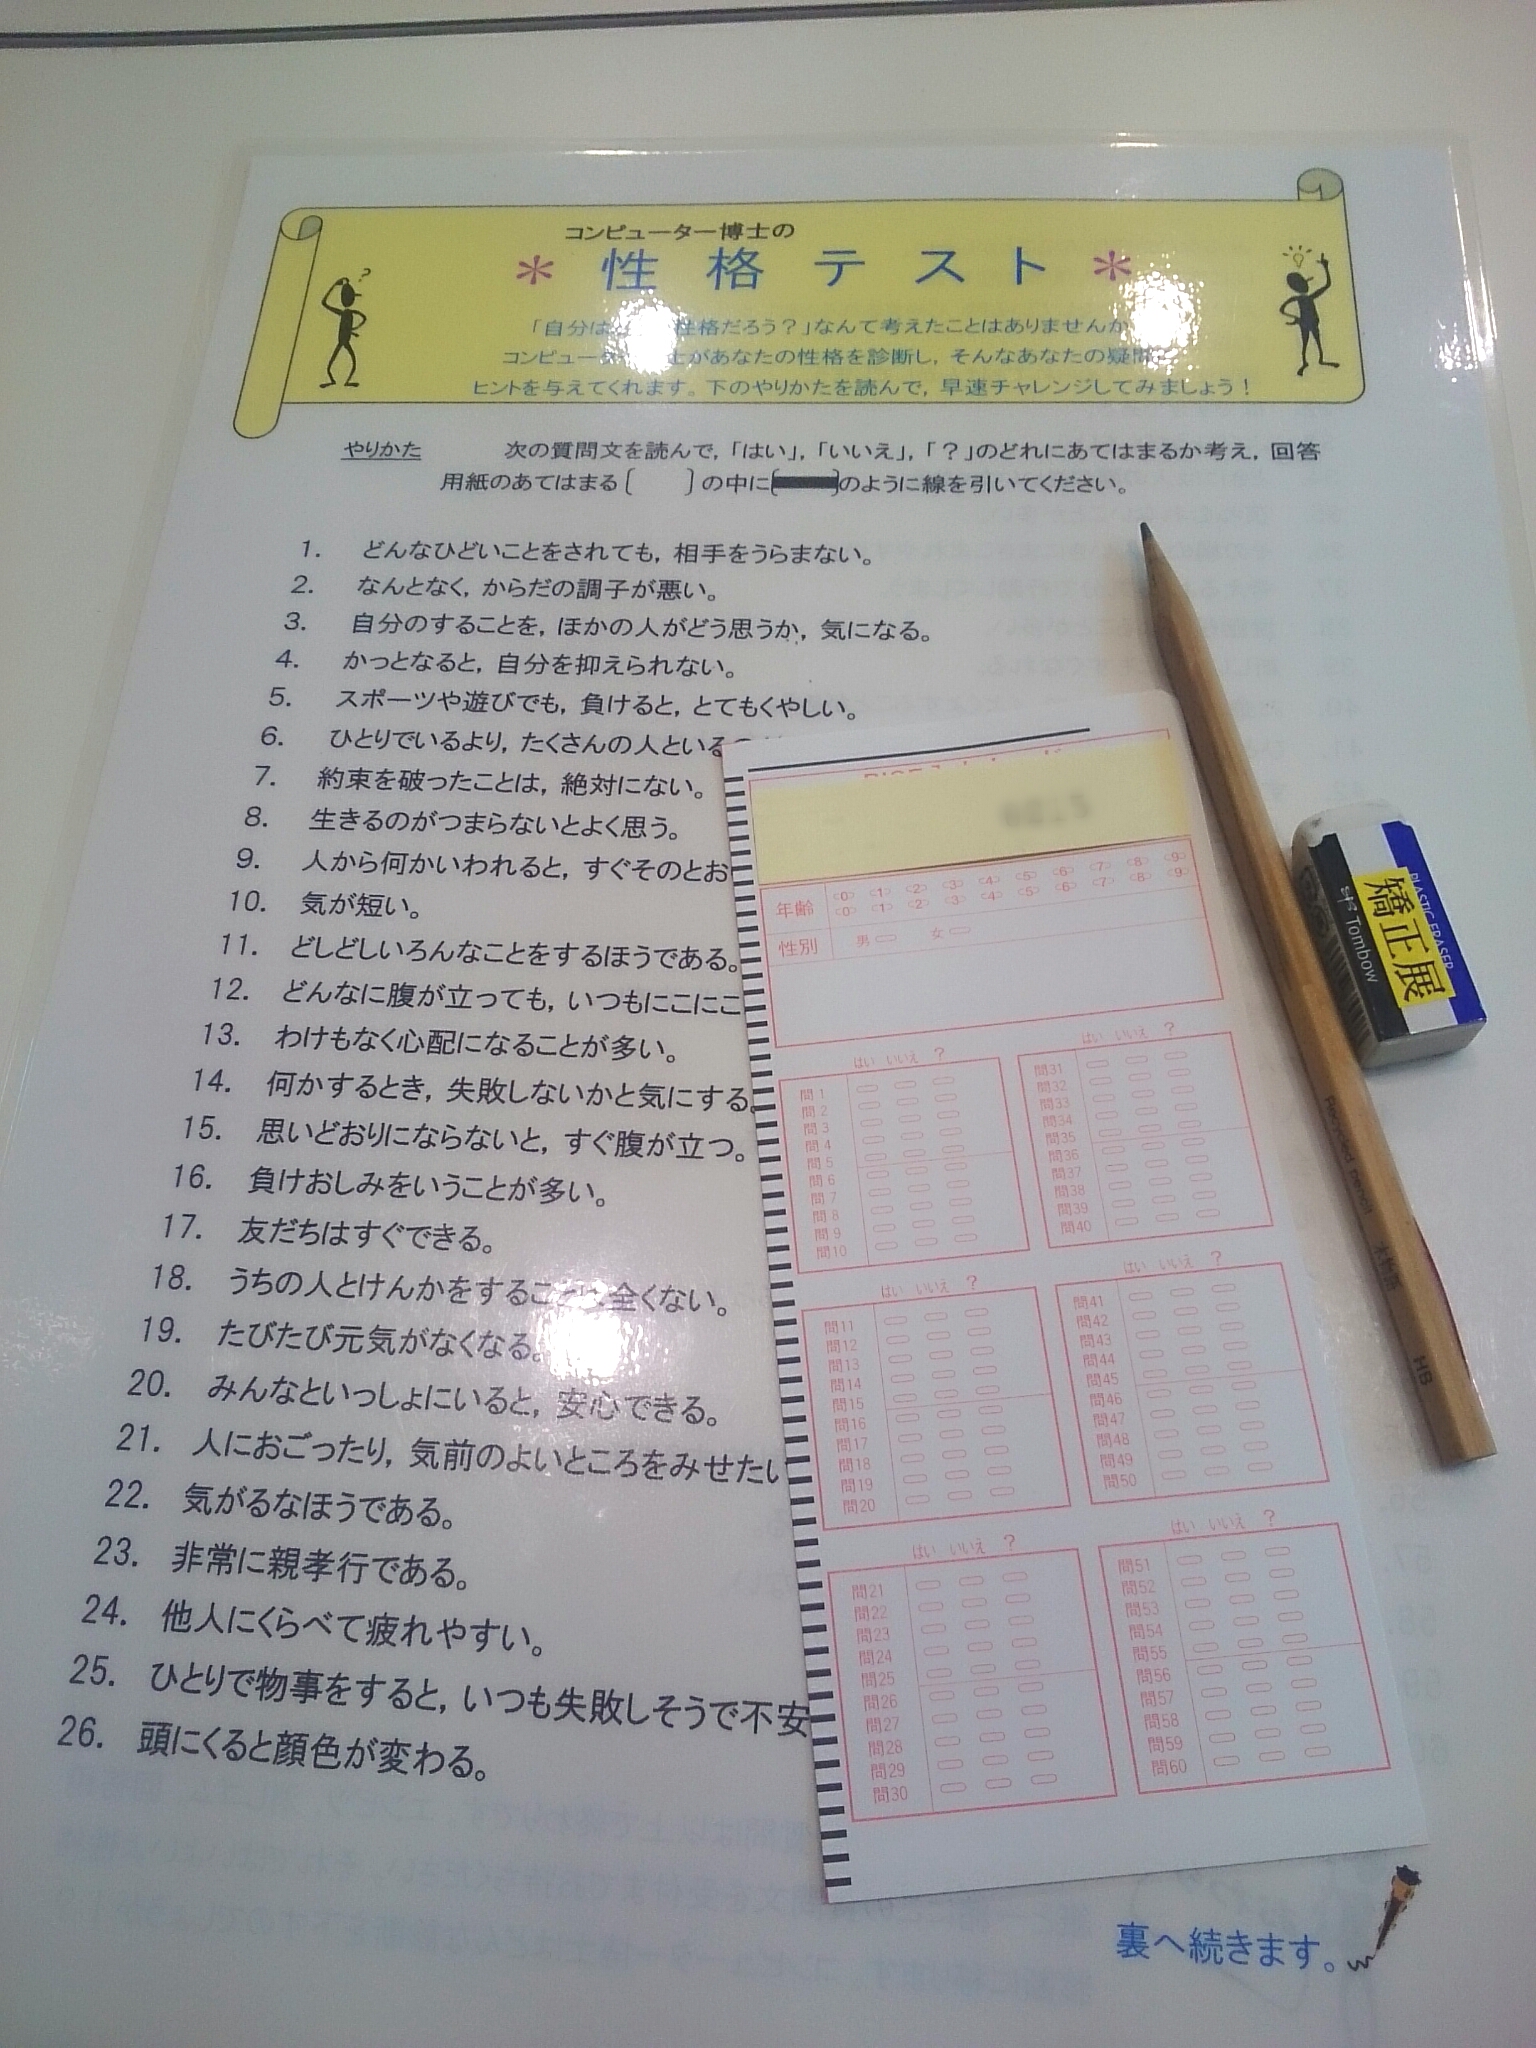 コンピューター博士の
＊性格テスト＊
「自分は 性格だろう？」なんて考えたことはありませんか
コンピュータ 士があなたの性格を診断し，そんなあなたの疑問
ヒントを与えてくれます。下のやりかたを読んで，早速チャレンジしてみましょう！
やりかた 次の質問文を読んで，「はい」，「いいえ」，「？」のどれにあてはまるか考え，回答
用紙のあてはまる〔 〕の中に〔 〕のように線を引いてください。
1. どんなひどいことをされても，相手をうらまない。
2. なんとなく，からだの調子が悪い。
3. 自分のすることを，ほかの人がどう思うか，気になる。
4. かっとなると，自分を抑えられない。
5. スポーツや遊びでも，負けると，とてもくやしい。
6. ひとりでいるより，たくさんの人といる
7. 約束を破ったことは，絶対にない。
8. 生きるのがつまらないとよく思う。
9. 人から何かいわれると，すぐそのとお
10. 気が短い。
11. どしどしいろんなことをするほうである。
12. どんなに腹が立っても，いつもにこにこ
13. わけもなく心配になることが多い。
14. 何かするとき，失敗しないかと気にする。
15. 思いどおりにならないと，すぐ腹が立つ。
16. 負けおしみをいうことが多い。
17. 友だちはすぐできる。
18. うちの人とけんかをすること 全くない。
19. たびたび元気がなくなる。
20. みんなといっしょにいると，安心できる。
21. 人におごったり，気前のよいところをみせたい
22. 気がるなほうである。
23. 非常に親孝行である。
24. 他人にくらべて疲れやすい。
25. ひとりで物事をすると，いつも失敗しそうで不安
26. 頭にくると顔色が変わる。
裏へ続きます。
年齢 0 1 2 3 4 5 6 7 8 9
0 1 2 3 4 5 6 7 8 9
性別 男 女
はい いいえ ？
問1
問2
問3
問4
問5
問6
問7
問8
問9
問10
はい いいえ ？
問11
問12
問13
問14
問15
問16
問17
問18
問19
問20
はい いいえ ？
問21
問22
問23
問24
問25
問26
問27
問28
問29
問30
はい いいえ ？
問31
問32
問33
問34
問35
問36
問37
問38
問39
問40
はい いいえ ？
問41
問42
問43
問44
問45
問46
問47
問48
問49
問50
はい いいえ ？
問51
問52
問53
問54
問55
問56
問57
問58
問59
問60
Recycled pencil 木物語 HB
PLASTIC ERASER
矯正展
Tombow